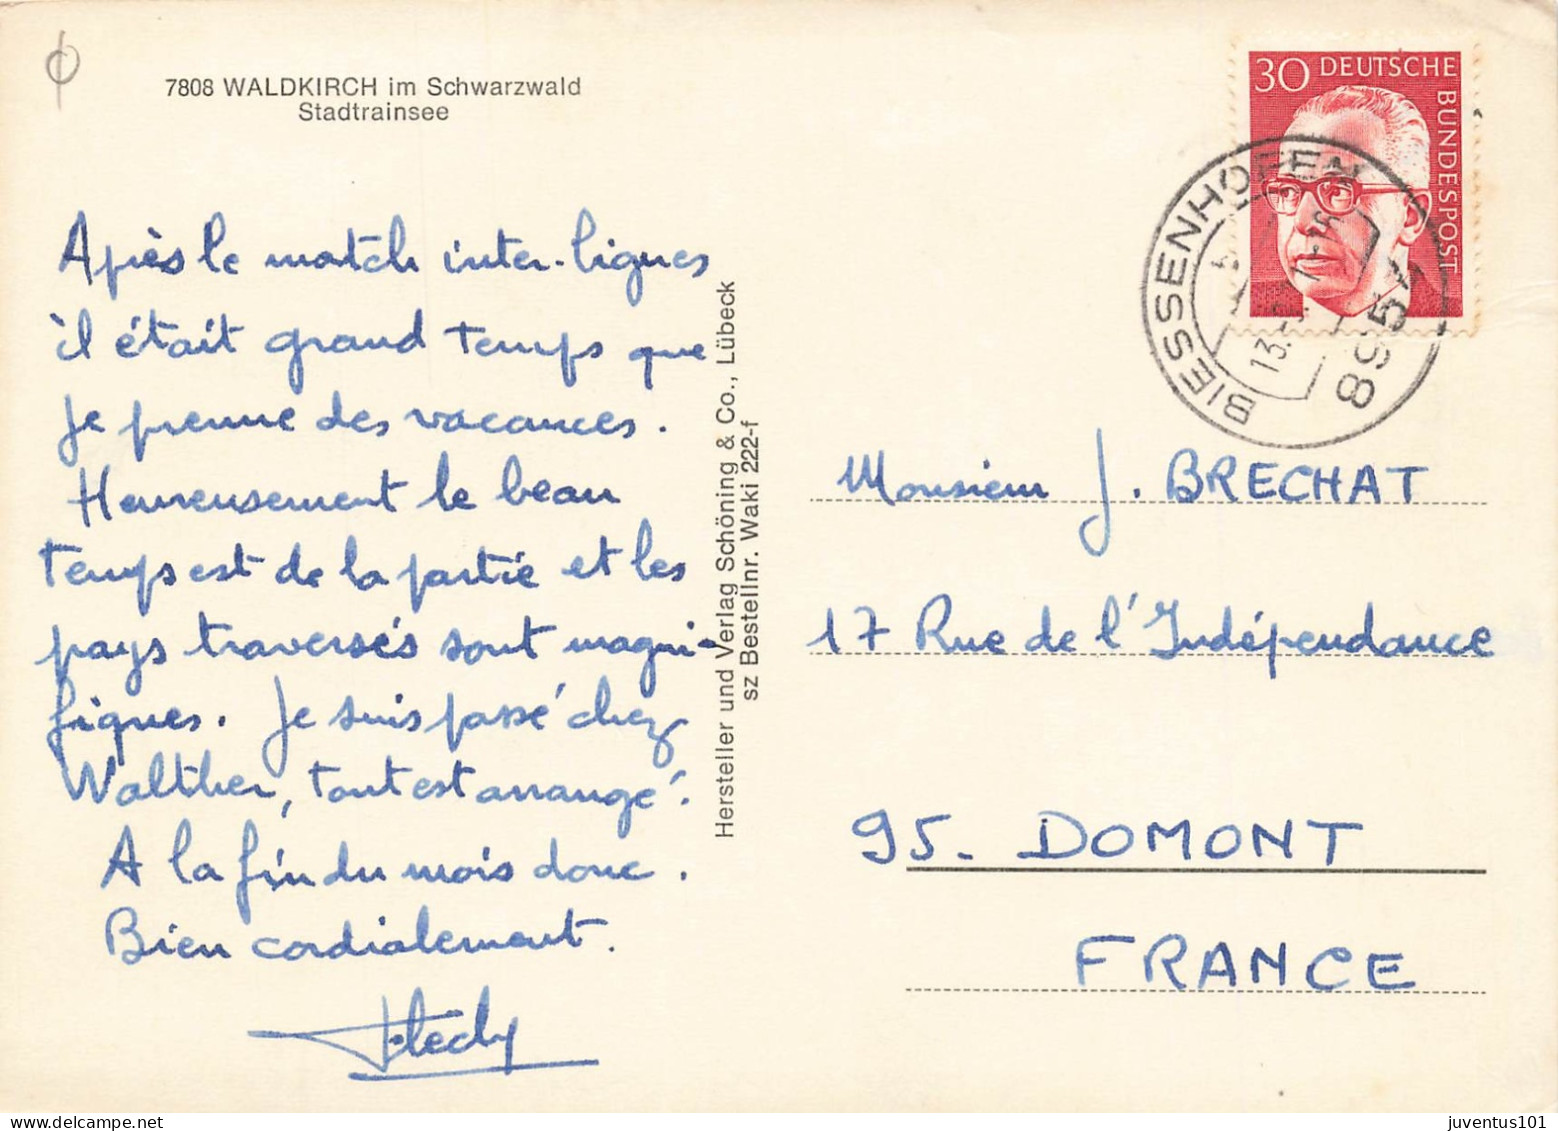 7808 WALDKIRCH im Schwarzwald
Stadtrainsee
Après le match inter-ligues
il était grand temps que
je prenne des vacances.
Heureusement le beau
temps est de la partie et les
pays traversés sont magni-
fiques. Je suis passé chez
Walther, tout est arrangé.
A la fin du mois donc.
Bien cordialement.
Hersteller und Verlag Schöning & Co., Lübeck
sz Bestellnr. Waki 222-f
30 DEUTSCHE
BUNDESPOST
BIESSENHOFEN
8954
Monsieur J. BRECHAT
17 Rue de l'Indépendance
95. DOMONT
FRANCE
juventus101